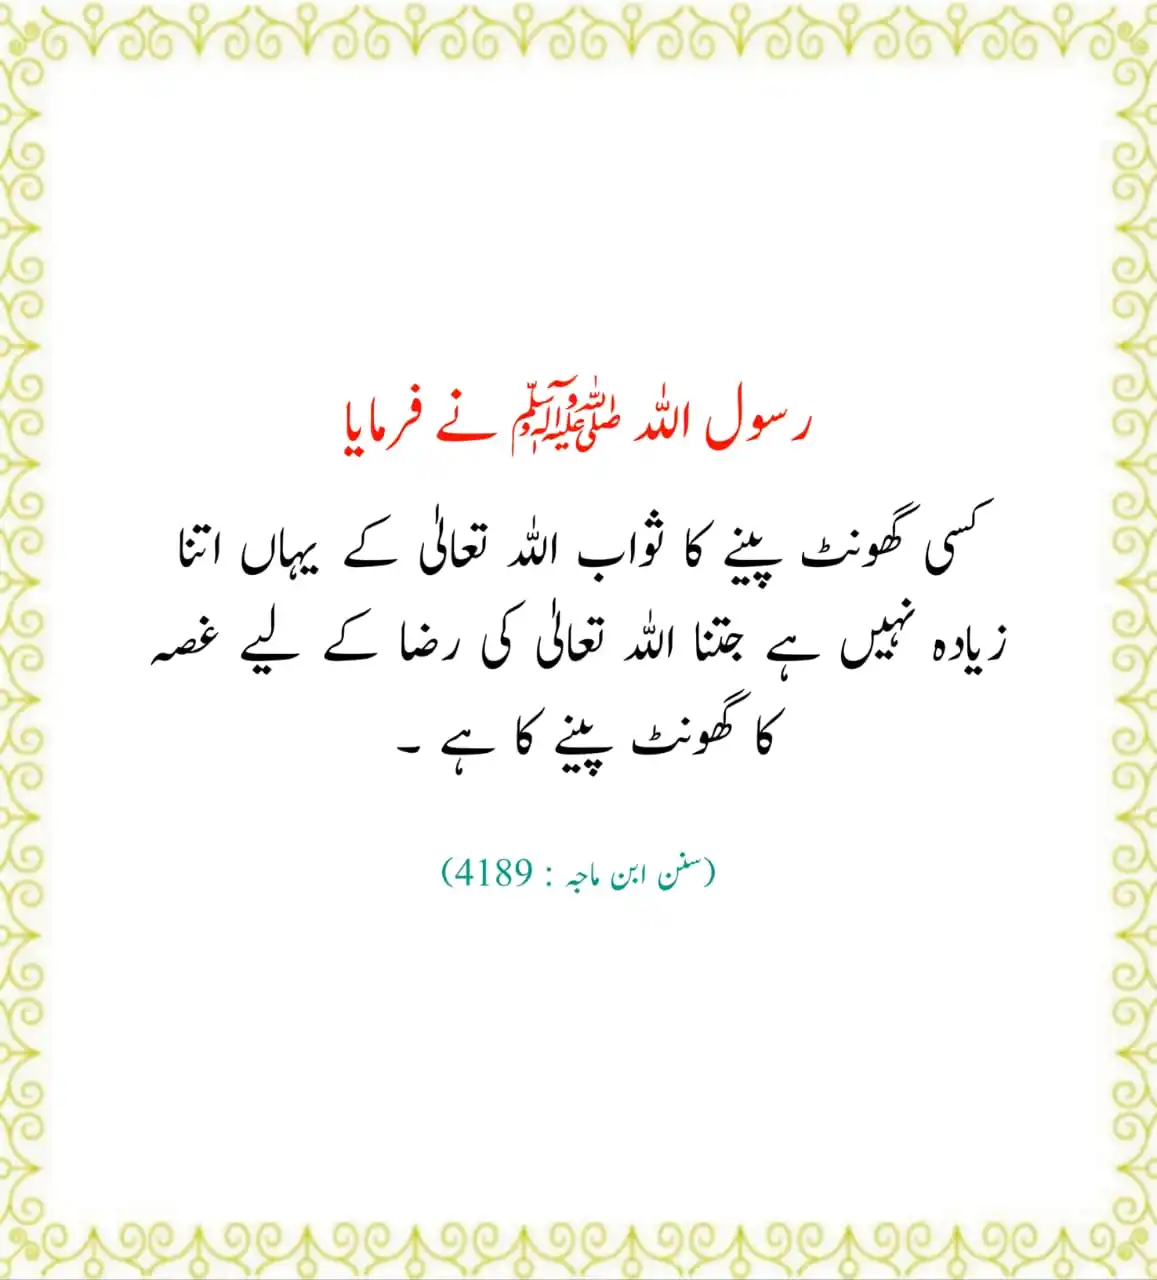 رسول اللہ ﷺ نے فرمایا
کسی گھونٹ پینے کا ثواب اللہ تعالٰی کے یہاں اتنا
زیادہ نہیں ہے جتنا اللہ تعالٰی کی رضا کے لیے غصہ
کا گھونٹ پینے کا ہے ۔
(سنن ابن ماجہ : 4189)